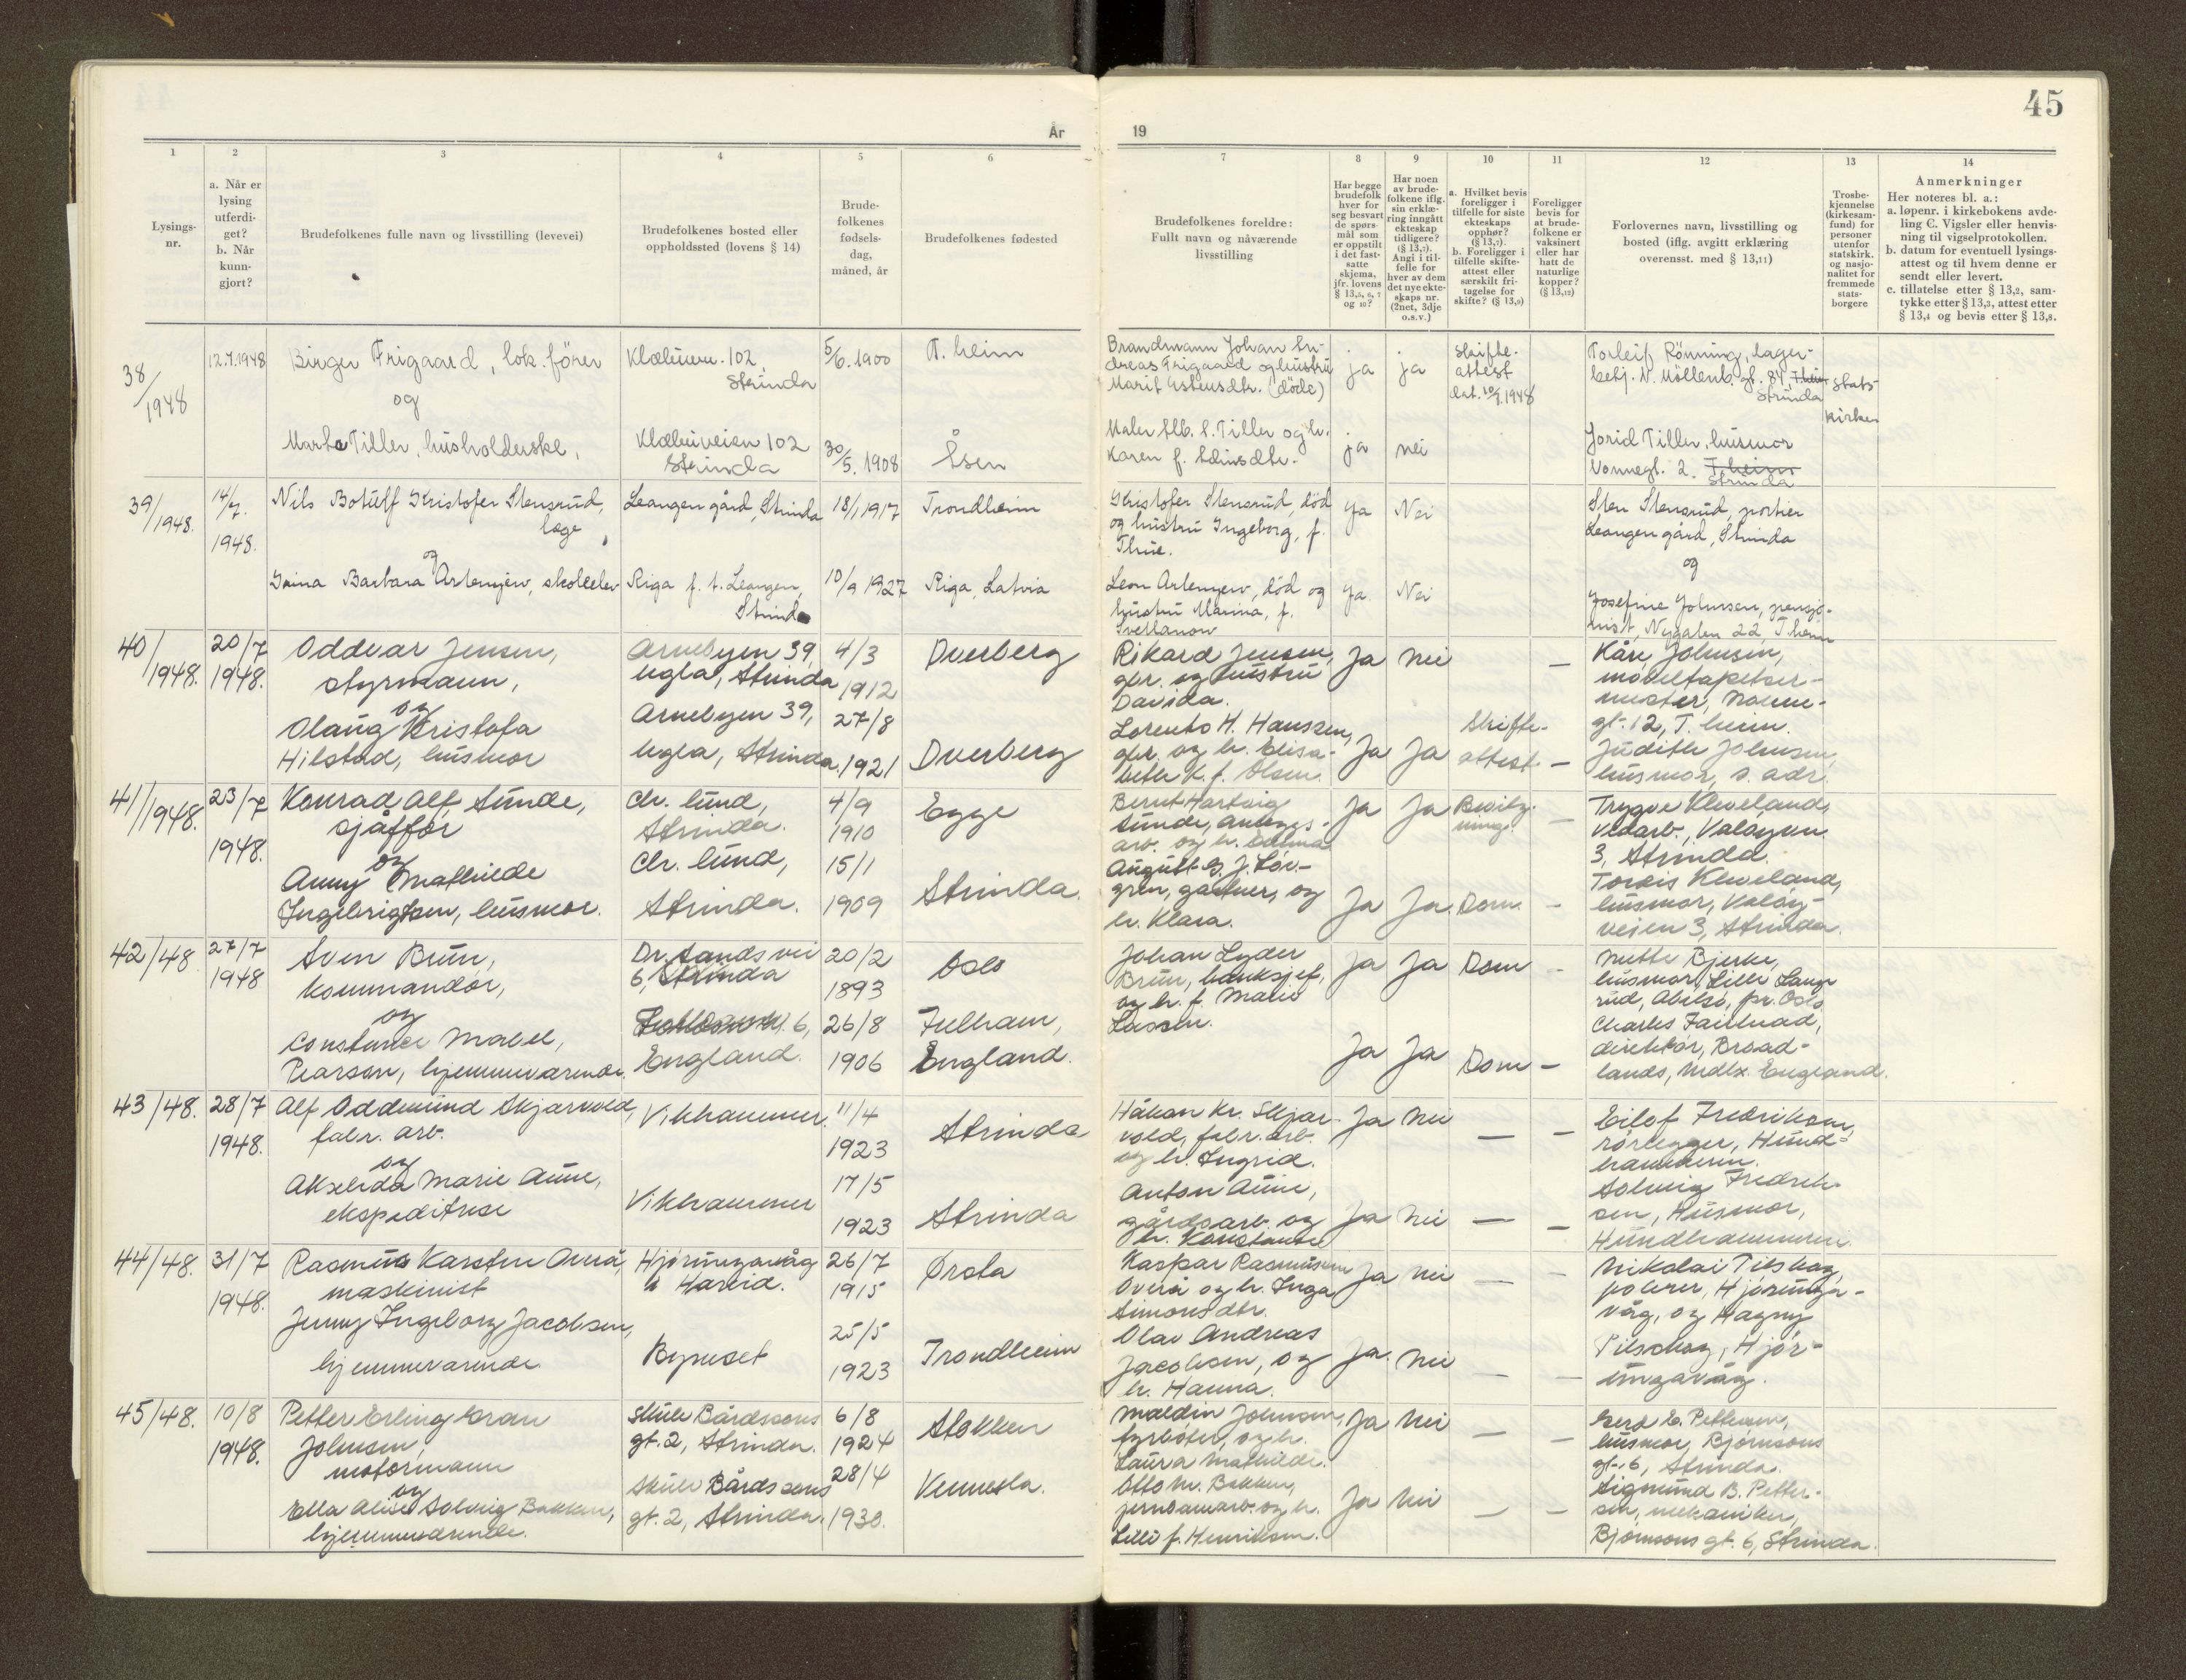 45
År
19
1
2
3
4
5
6
7
8
9
10
11
12
13
14
Lysings-
nr.
a. Når er
lysing
utferdi-
get?
b. Når
kunn-
gjort?
Brudefolkenes fulle navn og livsstilling (levevei)
Brudefolkenes bosted eller
oppholdssted (lovens § 14)
Brude-
folkenes
fødsels-
dag,
måned, år
Brudefolkenes fødested
Brudefolkenes foreldre:
Fullt navn og nåværende
livsstilling
Har begge
brudefolk
hver for
seg besvart
de spørs-
mål som
er oppstilt
i det fast-
satte
skjema,
jfr. lovens
§ 13,5, 6, 7
og 10?
Har noen
av brude-
folkene iflg.
sin erklæ-
ring inngått
ekteskap
tidligere?
(§ 13,7).
Angi i til-
felle for
hver av dem
det nye ekte-
skaps nr.
(2net, 3dje
o.s.v.)
a. Hvilket bevis
foreligger i
tilfelle for siste
ekteskaps
opphør?
(§ 13,7).
b. Foreligger i
tilfelle skifte-
attest eller
særskilt fri-
tagelse for
skifte? (§ 13,9)
Foreligger
bevis for
at brude-
folkene er
vaksinert
eller har
hatt de
naturlige
kopper?
(§ 13,12)
Forlovernes navn, livsstilling og
bosted (iflg. avgitt erklæring
overensst. med § 13,11)
Trosbe-
kjennelse
(kirkesam-
fund) for
personer
utenfor
statskirk.
og nasjo-
nalitet for
fremmede
stats-
borgere
Anmerkninger
Her noteres bl. a.:
a. løpenr. i kirkebokens avde-
ling C. Vigsler eller henvis-
ning til vigselprotokollen.
b. datum for eventuell lysings-
attest og til hvem denne er
sendt eller levert.
c. tillatelse etter § 13,2, sam-
tykke etter § 13,3, attest etter
§ 13,4 og bevis etter § 13,8.
38/1948
12.7.1948
Birger Frigaard, lok. förer
og
Marta Tiller, husholderske,
Klæbuvn. 102,
Strinda
Klæbuveien 102
Strinda
5/6. 1900
30/5. 1908
T. heim
Åsen
Brandmann Johan An-
dreas Frigaard og hustru
Marit Estensdtr. (döde)
Maler Alb. S. Tiller og h.
Karen f.
ja
ja
ja
nei
Skifte-
attest
dat. 10/7. 1948
Torleif Rönning, lager-
betj. N. Möllenb. gt. 84, T.heim
Strinda
Jorid Tiller, husmor
Vonnegt. 2. T.heim
Strinda
Stats-
kirken
39/1948.
14/7.
1948.
Nils Botulf Kristofer Stensrud,
læge
og
Barbara Artemjew, skoleelev
Leangen gård, Strinda
Riga f. t. Leangen,
Strinda
18/1 1917
10/9 1927
Trondheim
Riga, Latvia
Kristofer Stensrud, död
og hustru Ingeborg, f.
Thue.
Leon Artemjew, död og
hustru Marina, f.
Svetlanow
Ja
Nei
Ja
Nei
Sten Stensrud, portier
Leangen gård, Strinda
og
Josefine Johnsen, pensjo-
nist, Nygaten 22, T.heim
40/1948.
20/7
1948.
Oddvar Jensen,
styrmann,
og
Olaug Kristofa
Hilstad, husmor
Arnebyen 39,
Ugla, Strinda
Arnebyen 39,
Ugla, Strinda.
4/3
1912
27/8
1921
Dverberg
Dverberg
Rikard Jensen,
gbr. og hustru
Davida.
Lorents H. Hanssen,
gbr. og h. Elisa-
beth K. f. Olsen.
Ja
Nei
Ja
Ja
Skifte-
attest
—
—
Kåre Johnsen,
möbeltapetser-
mester, Nonne-
gt. 12, T. heim.
Judith Johnsen,
husmor, s. adr.
41/1948.
23/7
1948.
Konrad Alf Sunde,
sjåffør
og
Anny Mathilde
Ingebrigtsen, husmor.
Chr. lund,
Strinda.
Chr. lund,
Strinda.
4/9
1910
15/1
1909
Egge
Strinda.
Bernt Hartvig
Sunde, anleggs-
arb. og h.
August G. J. Löv-
gren, gartner, og
h. Klara.
Ja
Ja
Ja
Ja.
Bevilg-
ning.
Dom.
—
—
Trygve Kleveland,
3, Strinda.
Tordis Kleveland,
husmor, Valöy-
veien 3, Strinda.
42/48
27/7
1948
Sven Brun,
kommandör,
og
Constance Mabel,
Pearson, hjemmeværende.
Dr. Sands vei
6, Strinda
6,
England.
20/2
1893
26/8
1906
Oslo
Fulham,
England.
Johan Lyder
Brun, banksjef,
og h. f. Marie
Lassen.
Ja
Ja
Ja
Ja
Dom
Dom
—
—
Mette Bjerke,
husmor, Lille Lange-
rud, Abelsö, pr. Oslo
Charles
direktör, Broad-
lands, Mdlx. England.
43/48.
28/7
1948.
Alf Oddmund Skjarvold,
fabr. arb.
og
Akselida Marie Aune,
ekspeditrise
Vikhammer.
Vikhammer
11/4
1923
17/5
1923
Strinda
Strinda
Håkon Kr. Skjar-
vold, fabr. arb.
og h. Ingrid.
Anton Aune,
gårdsarb. og
h. Konstanse
Ja
Nei
Ja
Nei
—
—
—
—
Eilof Fredriksen,
rörlegger, Hund-
hammeren.
Solveig Fredrik-
sen, Husmor,
Hundhammeren.
44/48.
31/7
1948.
Rasmus Karsten Overå,
maskinist
Jenny Ingeborg Jacobsen,
hjemmeværende
Hjörungavåg
i Hareid.
Byneset
26/7
1915
25/5
1923
Ørsta
Trondheim
Kaspar Rasmussen
Overå og h. Inga
Simonsdtr.
Olav Andreas
Jacobsen, og
h. Hanna.
Ja
Nei
Ja.
Nei
—
—
—
—
Nikolai Tilseth,
polerer, Hjörunga-
våg, og Magny
Hjör-
ungavåg.
45/48.
10/8
1948.
Petter Erling Kran
Johnsen,
motormann
og
Ella Alise Solveig Bakken,
hjemmeværende.
Skule Bårdssons
gt. 2, Strinda.
Skule Bårdssons
gt. 2, Strinda.
6/8
1924
28/4
1930.
Stokken
Vennesla.
Johnsen,
fyrböter, og h.
Laura Mathilde.
Otto M. Bakken,
og h.
Lilli f. Henriksen.
Ja
Nei
Ja
Nei
—
—
—
—
Gerd E. Pettersen,
husmor, Björnsons
gt. 6, Strinda.
Sigmund B. Petter-
sen, mekaniker,
Björnsons gt. 6, Strinda.